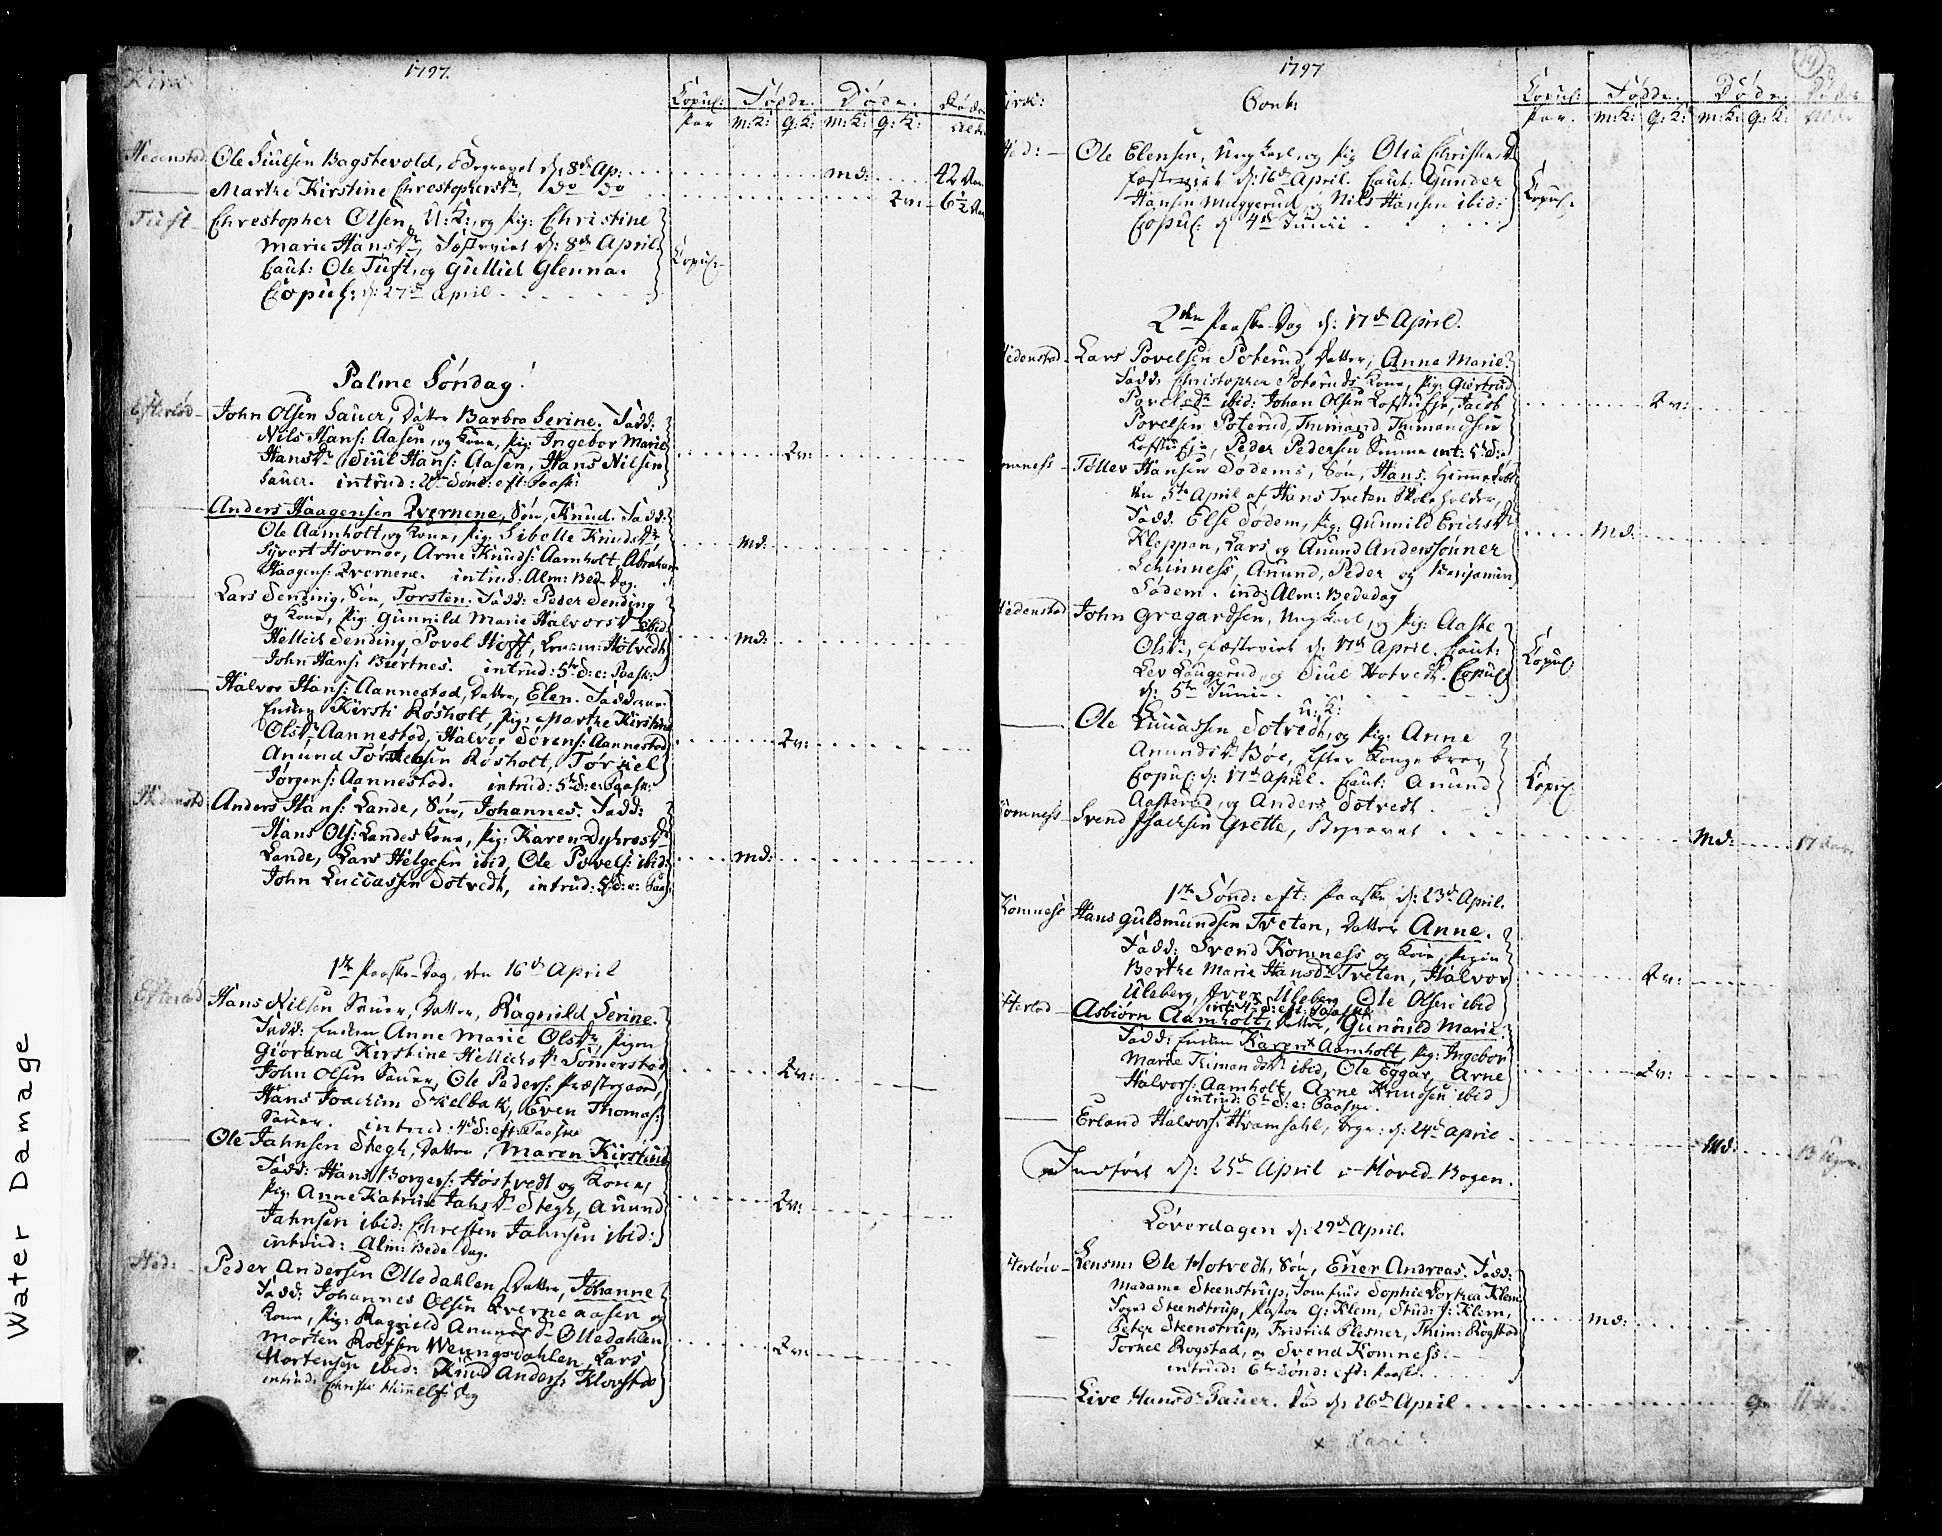 Water Damage
Kirk:
1797.
Copul: Fødde. Døde. Dødes
Par m:K: q:K: m:K: q:K: Alder
Hedenstad Ole Siulsen Bagstevold, Begravet d: 8de Ap: md: 42 Aar
Marthe Kirstine Christophersdr, do do Qv: 6½ Aar
Tuft Christopher Olsen, U:K: og pig: Christine
Marie Hansdr, Fæsteviet d: 8de April.
Caut: Ole Tuft, og Gulliek Glenna. Copul:
Copul: d: 27de April
Palme Søndag.
Efterlød John Olsen Sauer, Datter Barbro Serine. Fadd:
Nils Hans: Aasen, og Kone, pig: Ingebor Marie
Hansdr Siul Hans: Aasen, Hans Nilsen Qv:
Sauer. introd: Sond: eft: Paaske
Anders Haagensen Qvernene, Søn, Knud. Fadd:
Ole Aamholt, og Kone, pig: Sibelle Knudsdr,
Syvert Hovmoe, Arne Knuds: Aamholt, Abraham md:
Haagens: Qvernene. introd: Alm: Bede Dag.
Lars Sending, Søn, Torsten. Fadd: Peder Sending
og Kone, pig: Gunnild Marie Halvorsdr ibid
Hellek Sending, Povel Hoff, Hotvedt md:
John Hans: Buertnes. introd: 5te S: e: Paaske:
Halvor Hans: Aannestad, Datter, Elen. Fadderne
Enken Kirsti Røsholt, pig: Marthe Kirstine
Olsdr Aannestad, Halvor Sørens: Aannestad Qv:
Anund Torstensen Røsholt, Torkel
Jørgens: Aannestad. introd: 5te S: e: Paaske:
Hedenstad Anders Hans: Lande, Søn, Johannes. Fadd:
Hans Ols: Landes Kone, pig: Karen Dyhresdr
Lande, Lars Helgesen ibid, Ole Povels: ibid: md:
John Luccassen Sotvedt, introd: 5te S: e: Paas:
1ste Paaske-Dag, den 16de April
Efterlød Hans Nilsen Sauer, Datter, Ragnild Serine.
Fadd: Enken Anne Marie Olsdr, Pigen
Giorand Kirstine Hellichsdr Somerstad
John Olsen Sauer, Ole Peders: Præstegaard, Qv:
Hans Joachim Skelbak, Even Thomas:
Sauer. introd: 4de S: eft: Paaske
Ole Jahnsen Stegh, Datter, Maren Kirstine
Fadd: Hans Borgers: Hostvedt og Kone,
pig: Anne Katrine Jahnsdr Stegh, Anund Qv:
Jahnsen ibid: Christen Jahnsen ibid:
introd: Alm: Bede Dag.
Hed: Peder Andersen Olledahlen, Datter, Johanne
Fadd: Johannes Olsen Qverneaasen og
Kone, pig: Ragnild Anundsdr Olledahlen
Morten Rolfsen Weungsdahlen, Lars Qv:
Mortensen ibid: Knud Anders: Klovstad
introd: Christi Himmelf: Dag
1797
Cont:
Kirk:
Copul: Fødde. Døde.
Par. m:K: q:K: m:K: q:K: Alder
Hed: Ole Elensen, Ung Karl, og pig Olia Christensdr
Fæsteviet d: 16de April. Caut: Gunder
Hansen Muggerud, og Nils Hansen ibid: Copul:
Copul: d: 4de Junii
2den Paaske-Dag d: 17de April.
Hedenstad Lars Povelsen Poterud, Datter, Anne Marie.
Fadd: Christopher Poteruds Kone, pig: Giertrud
Povelsdr ibid: Johan Olsen Loftstufye, Jacob Qv:
Povelsen Poterud, Thimand Thimandsen
Loftstufye, Peder Pedersen int: 5te S: e:
Komness Tollev Hansen Sødems, Søn, Hans. Hiemmedøbt
den 5te April af Hans Tveten Skoleholder,
Fadd: Else Sødem, pig: Gunnild Erichsdr md:
Kleppan, Lars og Anund Anderssønner
Skinness, Anund, Peder og Benjamin
Sødem. ind: Alm: Bededag
Hedenstad John Gregardsen, Ung Karl, og pig: Aaste
Olsdr, Fæsteviet d: 17de April. Caut: Copul:
Lev Laugerud, og Siul Hotvedt. Copul:
d: 5te Junii.
U:K:
Ole Luccassen Sotvedt, og pig: Anne
Anundsdr Bøe, Efter Konge brev
Copul: d: 17de April. Caut: Anund Copul:
Aasterud, og Anders Sotvedt
Komness Svend Isachsen Grette, Begravet md: 17 Aar
1ste Sønd: eft: Paaske, d: 23de April.
Komness Hans Guldmundsen Tveten, Datter Anne.
Fadd: Svend Komness og Kone, pigen
Berthe Marie Hansdr Tveten, Halvor Qv:
Uleberg, Iver Uleberg, Ole Olsen ibid
int: 4de S: eft: Paaske
Efterlød Asbiørn Aamholt, Datter, Gunnild Marie.
Fadd: Enken Karen x Aamholt, pig: Ingebor
Marie Thimandsdr ibid, Ole Eggar, Arne Qv:
Halvors: Aamholt, Arne Knudsen ibid
introd: 6te S: e: Paaske.
Erland Halvors: Hvamsahl, begr: d: 24de April md: 13
Indført d: 25de April i Hoved-Bogen.
Løverdagen d: 29de April.
Efterløv Lensm: Ole Hotvedt, Søn, Ener Andreas. Fadd:
Madame Steenstrup, Jomfrue Sophie Dorthea Klem
Fogd Steenstrup, Pastor G: Klem, Stud: J: Klem, md:
Peter Steenstrup, Fridrich Plesner, Thim: Rogstad
Torkel Rogstad, og Svend Komness.
introd: 6te Sønd: eft: Paaske.
Live Hansdr Sauer. Død d: 26de April q: 11
x Kari